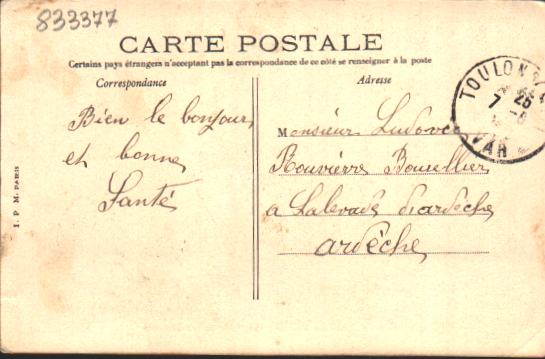 833377
CARTE POSTALE
Certains pays étrangers n'acceptant pas la correspondance de ce côté se renseigner à la poste
Correspondance
Adresse
Bien le bonjour
et bonne
Santé
Monsieur Ludovic
Rouvierre Bourellier
a Lalevade d'ardèche
ardèche
TOULON S
7 25
VAR
I. P. M. PARIS